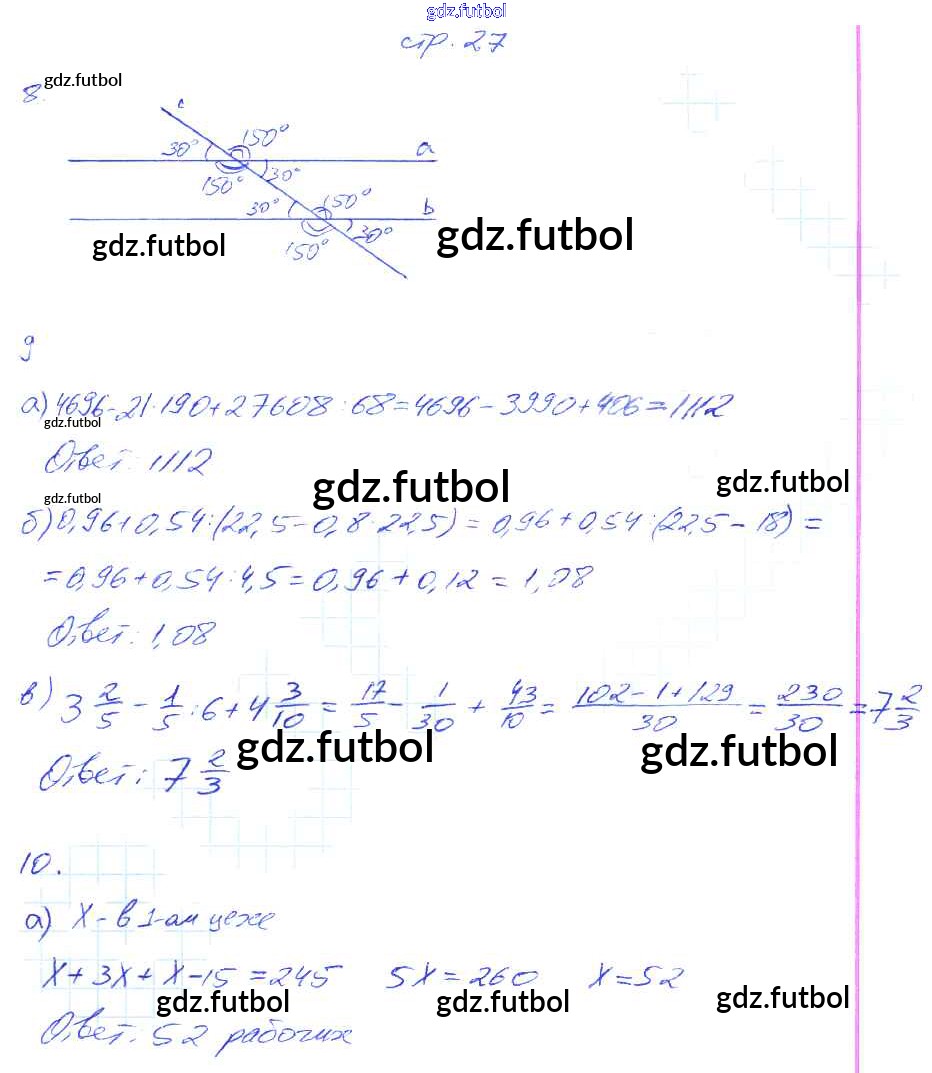 gdz.futbol
стр. 27
gdz.futbol
8.
c
30° 150° a
150° 30°
30° 150° b
150° 30°
gdz.futbol gdz.futbol
9
а) 4696-21·190+27608:68=4696-3990+406=1112
gdz.futbol
Ответ: 1112
gdz.futbol gdz.futbol
gdz.futbol
б) 0,96+0,54:(22,5-0,8·22,5)=0,96+0,54:(22,5-18)=
=0,96+0,54:4,5=0,96+0,12=1,08
Ответ: 1,08
в) 3 2/5 - 1/5 : 6 + 4 3/10 = 17/5 - 1/30 + 43/10 = (102-1+129)/30 = 230/30 = 7 2/3
gdz.futbol gdz.futbol
Ответ: 7 2/3
10.
а) X - в 1-ом цехе
X+3X+X-15=245 5X=260 X=52
gdz.futbol gdz.futbol gdz.futbol
Ответ: 52 рабочих